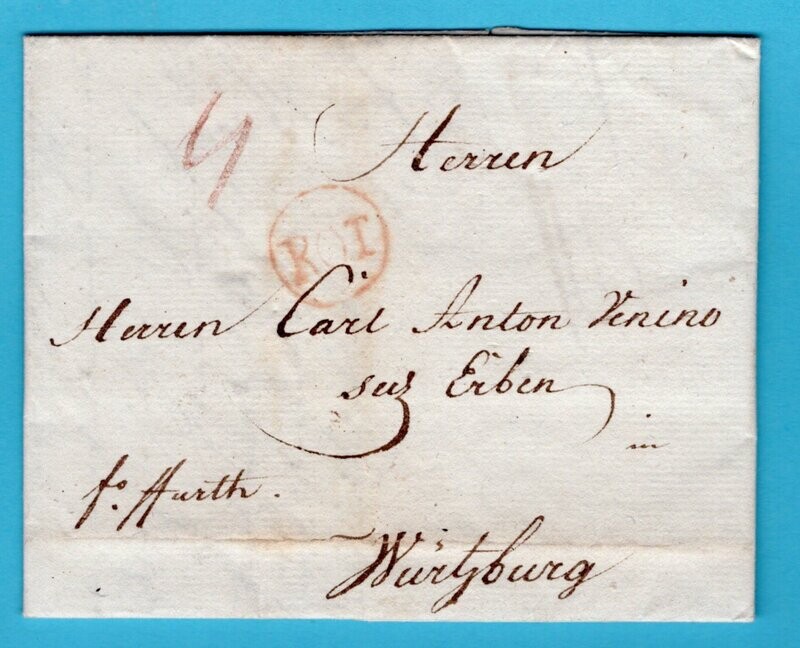 4
Herren
R I
Herren Carl Anton Venino
seel Erben
in
fo. ffurth.
Würtzburg